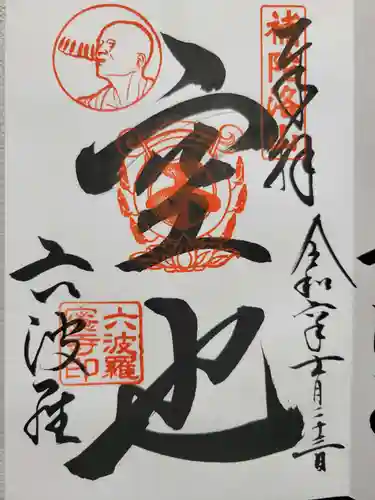 奉拝
補陀洛
令和六年十一月二十三日
空也
六波羅
六波羅
蜜寺印